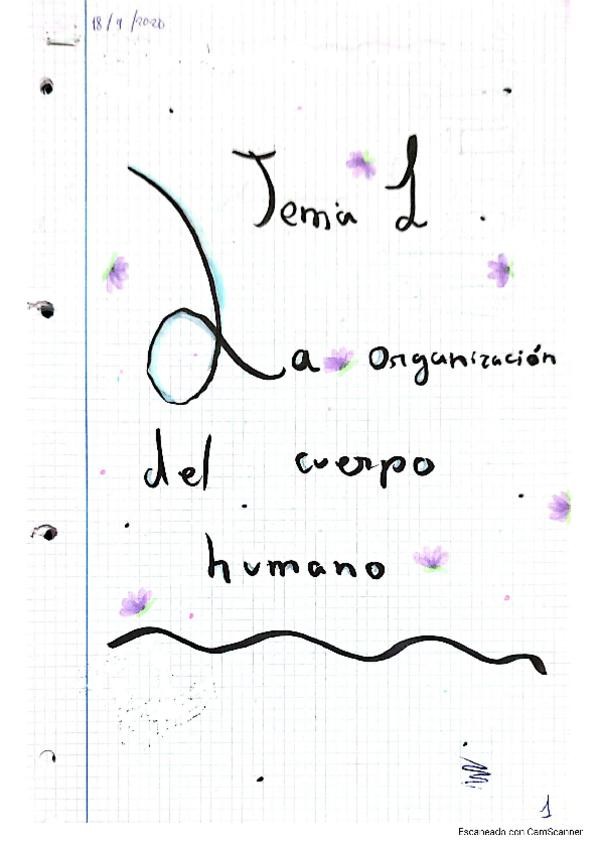 18/9/2020
Tema 1
La Organización
del cuerpo
humano
1
Escaneado con CamScanner